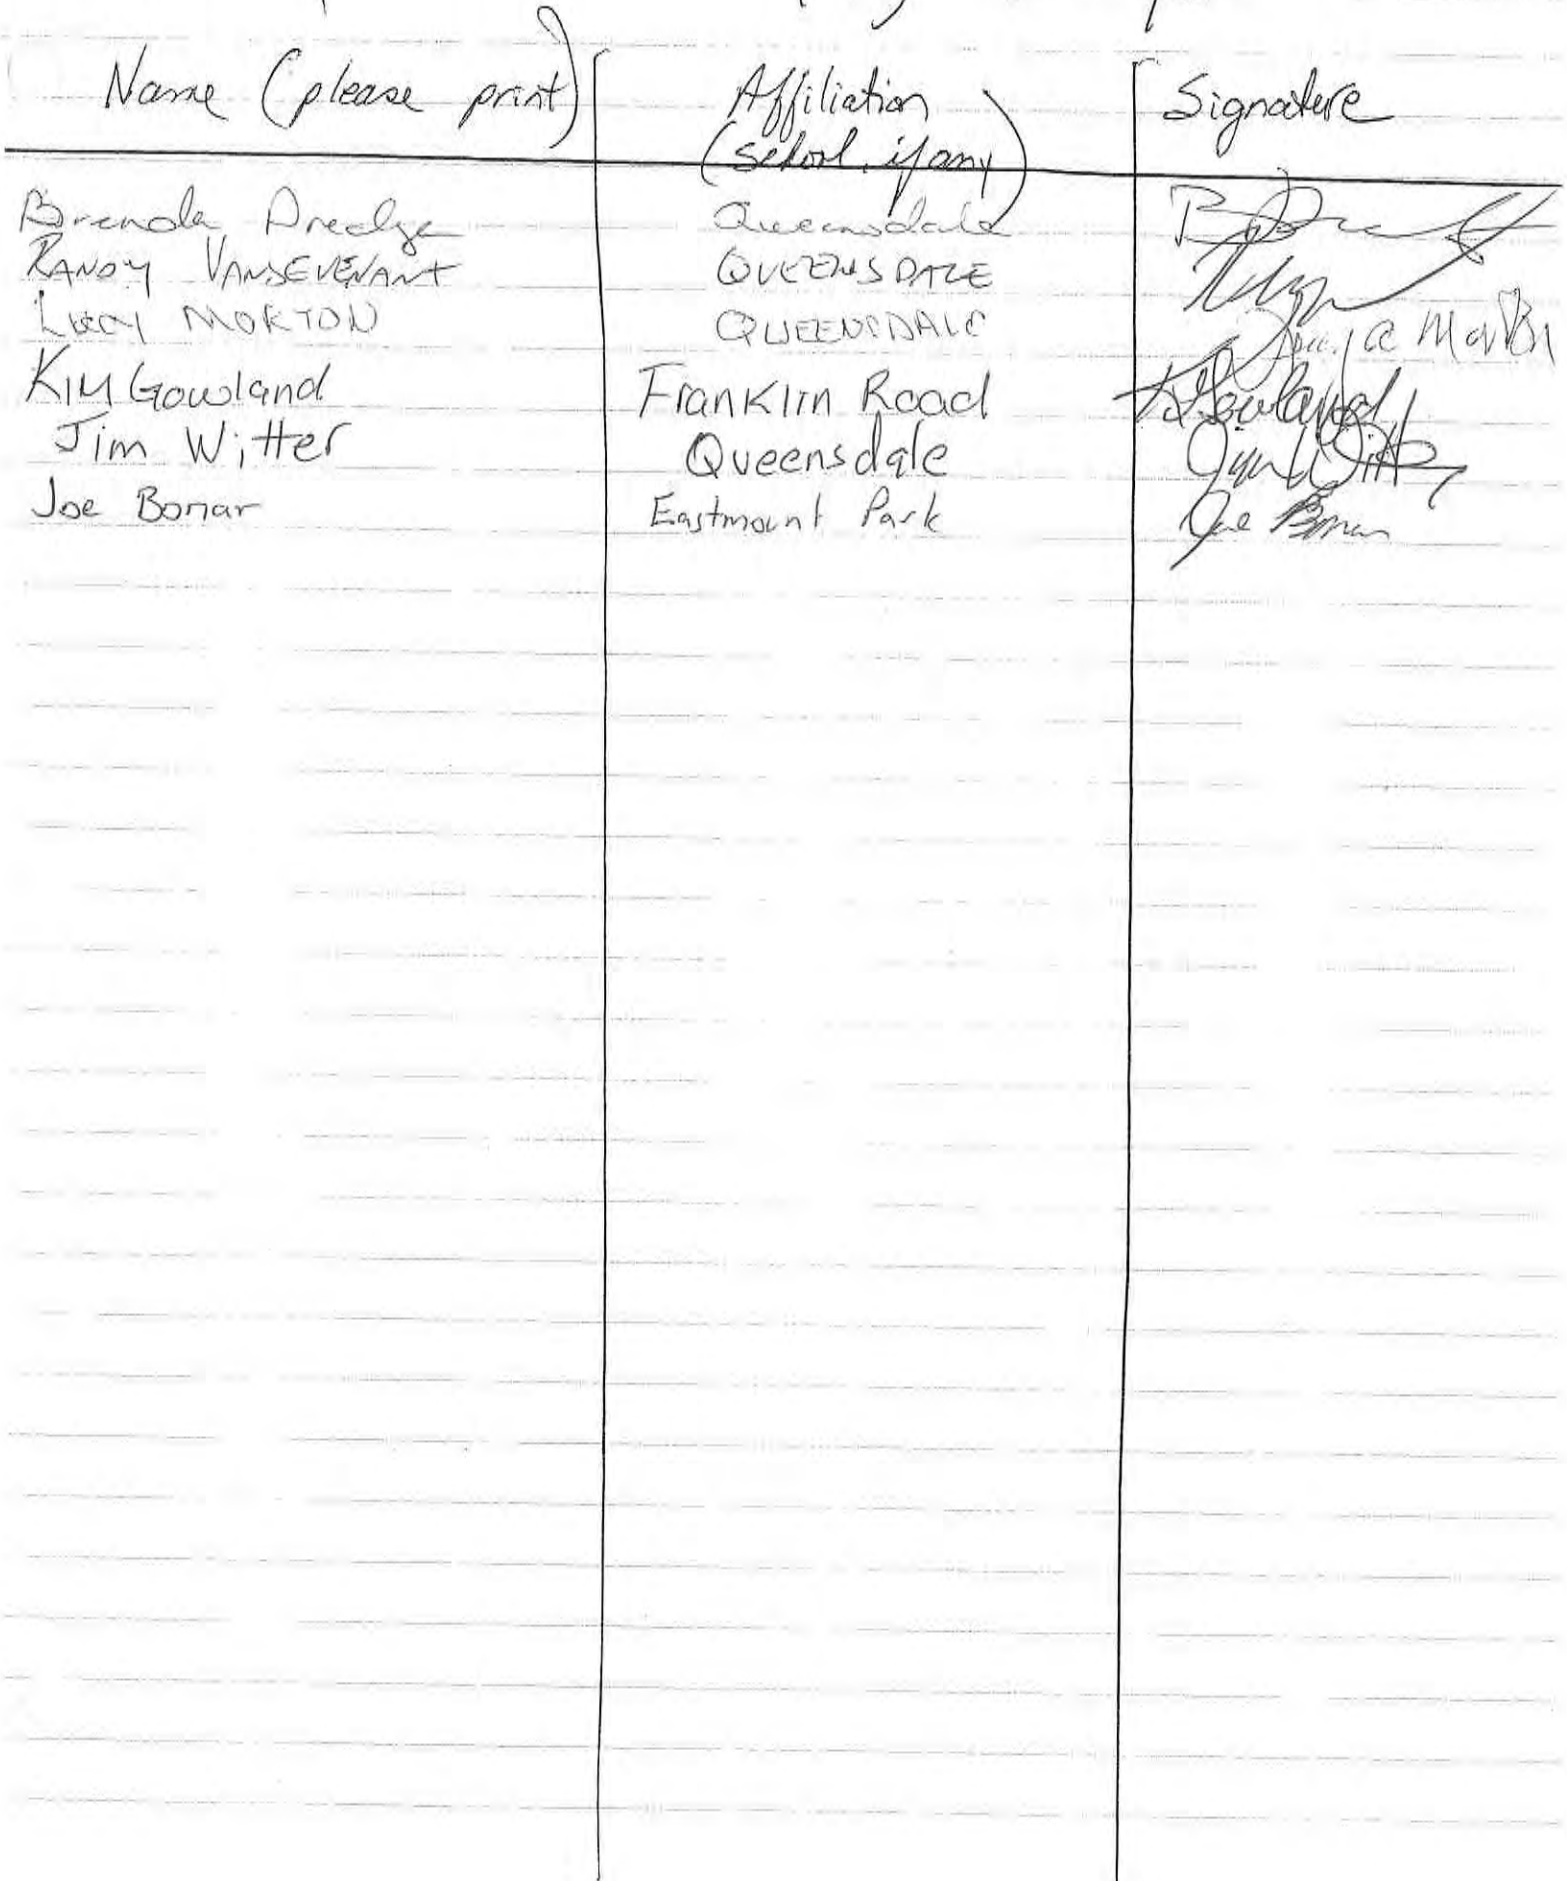 Name (please print) Affiliation Signature
(school, if any)
Brenda Dredge Queensdale
RANDY VANSEVENANT QUEENSDALE
Lucy MORTON QUEENSDALE
Kim Gowland Franklin Road KGowland
Jim Witter Queensdale Jim Witter
Joe Bonar Eastmount Park Joe Bonar